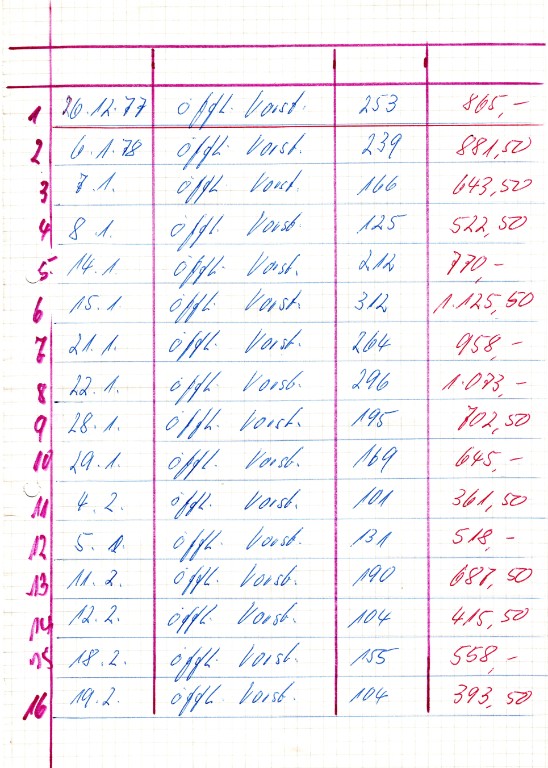 1 26.12.77 öfftl. Vorst. 253 865,-
2 6.1.78 öfftl. Vorst. 239 881,50
3 7.1. öfftl. Vorst. 166 643,50
4 8.1. öfftl. Vorst. 125 522,50
5 14.1. öfftl. Vorst. 212 770,-
6 15.1 öfftl. Vorst. 312 1.125,50
7 21.1. öfftl. Vorst. 264 958,-
8 22.1. öfftl. Vorst. 296 1.073,-
9 28.1. öfftl. Vorst. 195 702,50
10 29.1. öfftl. Vorst. 169 645,-
11 4.2. öfftl. Vorst. 101 361,50
12 5. öfftl. Vorst. 131 518,-
13 11.2. öfftl. Vorst. 190 687,50
14 12.2. öfftl. Vorst. 104 415,50
15 18.2. öfftl. Vorst. 155 558,-
16 19.2. öfftl. Vorst. 104 393,50